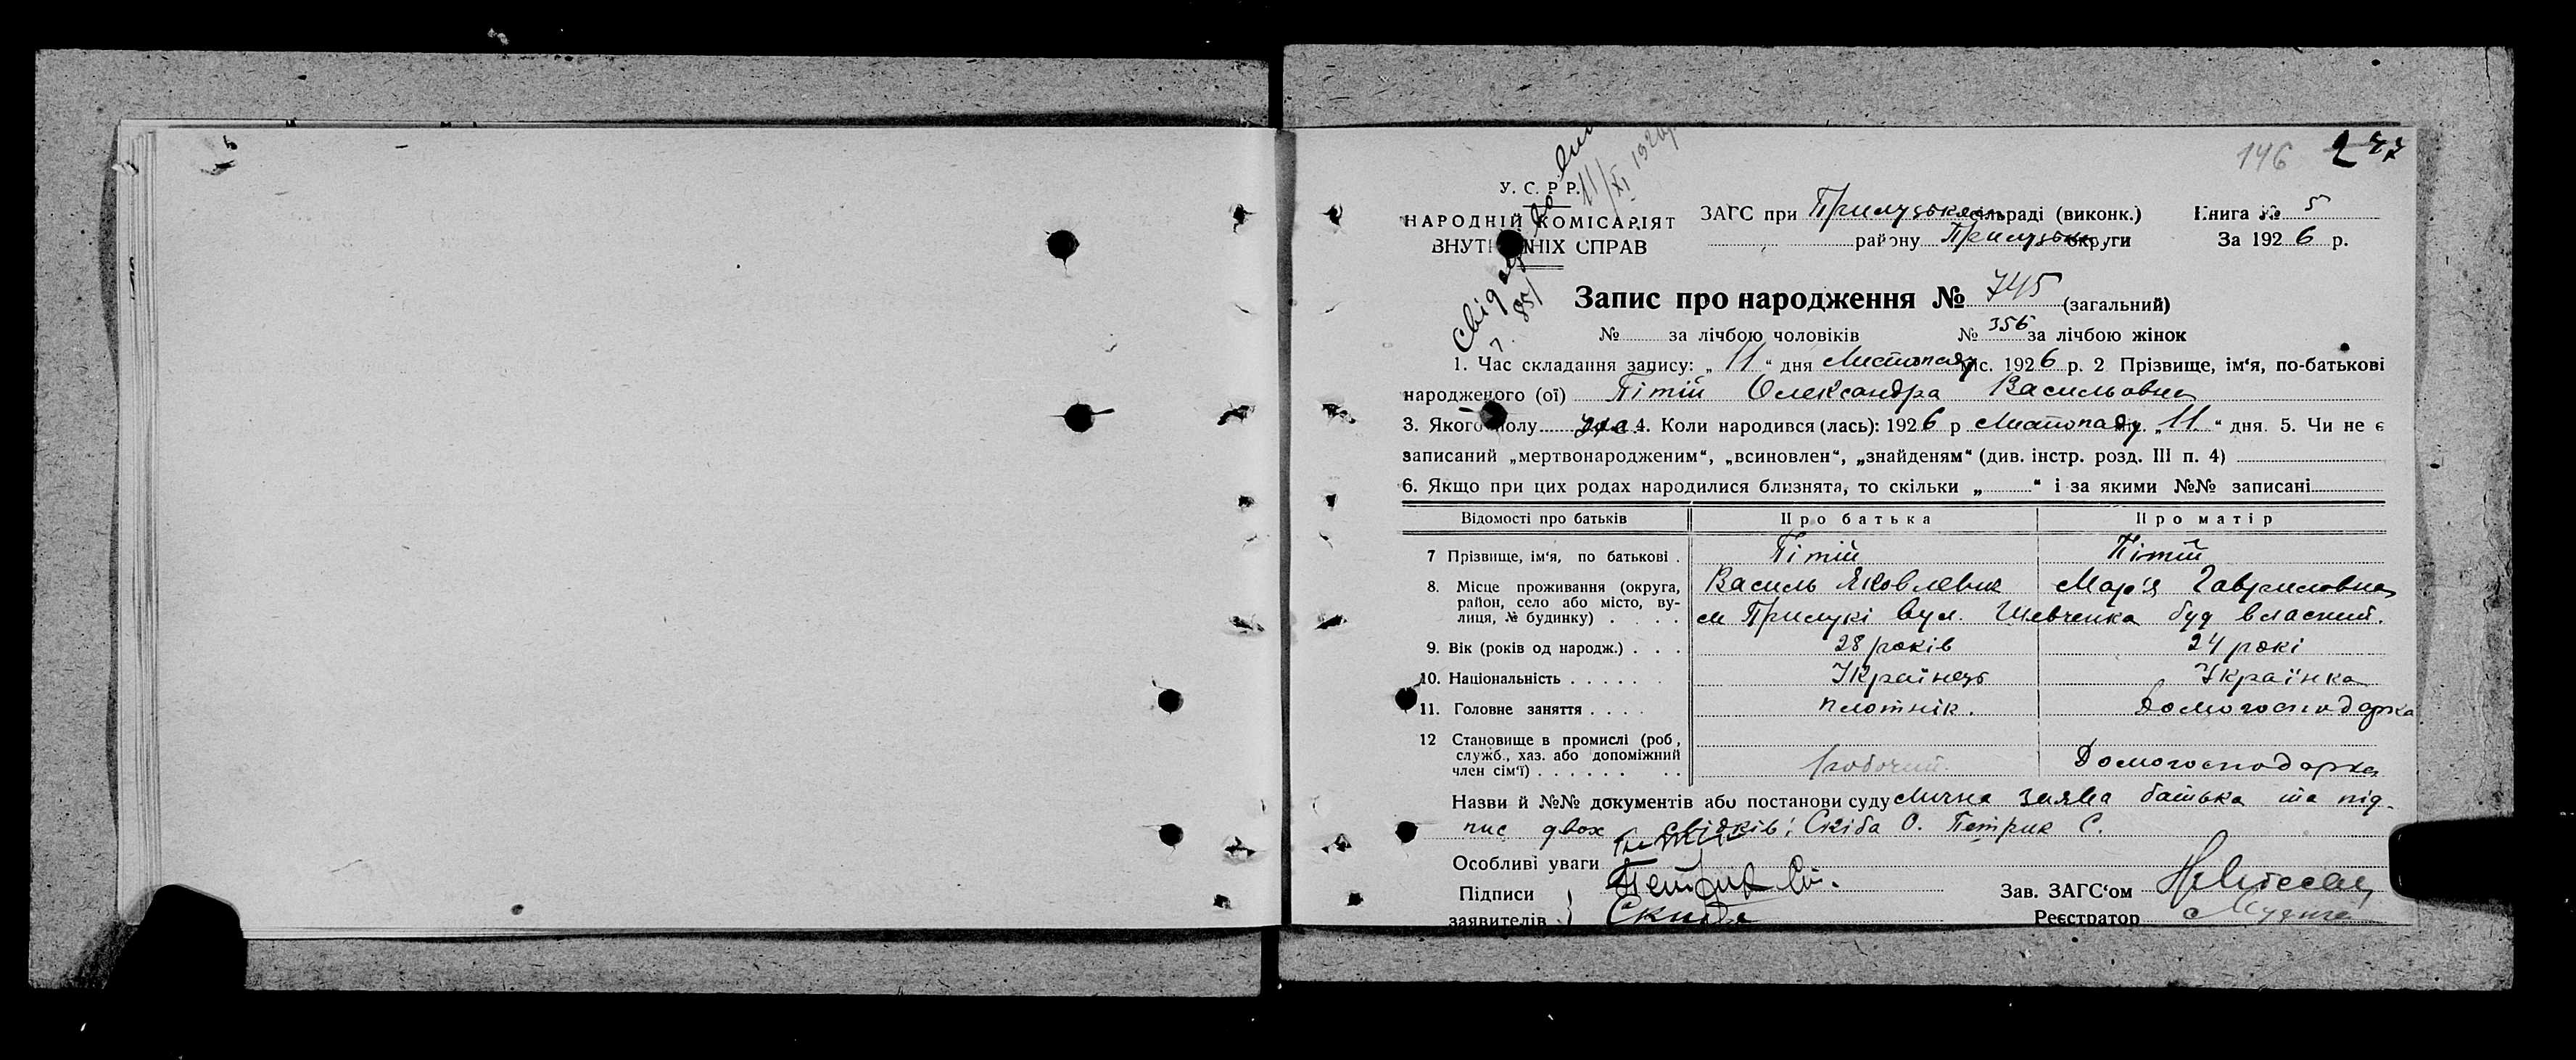 146 247
У. С. Р Р.
НАРОДНІЙ КОМІСАРІЯТ
ВНУТРІШНІХ СПРАВ
11/XI 1926р
ЗАГС при Прилуцькій сільраді (виконк.) Книга № 5
району Прилуцьк округи За 1926 р.
Запис про народження № 745 (загальний)
№ за лічбою чоловіків № 356 за лічбою жінок
1. Час складання запису: „ 11 “ дня Листопаду міс. 1926 р. 2 Прізвище, ім‘я, по-батькові
народженого (ої) Пітій Олександра Васильовна
3. Якого полу жіс. 4. Коли народився (лась): 1926 р Листопаду міс. „ 11 “ дня. 5. Чи не є
записаний „мертвонародженим“, „всиновлен“, „знайденям“ (див. інстр. розд. III п. 4)
6. Якщо при цих родах народилися близнята, то скільки „ “ і за якими №№ записані
Відомості про батьків Про батька Про матір
7 Прізвище, ім‘я, по батькові . Пітій Пітій
8. Місце проживання (округа, Василь Яковлевич Мар'я Гавриловна
район, село або місто, ву-
лиця, № будинку) . . . . м Прилукі вул. Шевченка буд власний.
9. Вік (років од народж.) . . . 28 років 24 рокі
10. Національність . . . . . . Українець Українка
11. Головне заняття . . . . плотнік. Домогосподарка
12 Становище в промислі (роб,
служб., хаз. або допоміжний
член сім‘ї) . . . . . . . . робочий. Домогосподарка
Назви й №№ документів або постанови суду Лична заява батька та під-
пис двох свідків: Скіба О. Петрик С.
Особливі уваги
Підписи Петрик Зав. ЗАГС‘ом
заявителів Скиба Реєстратор